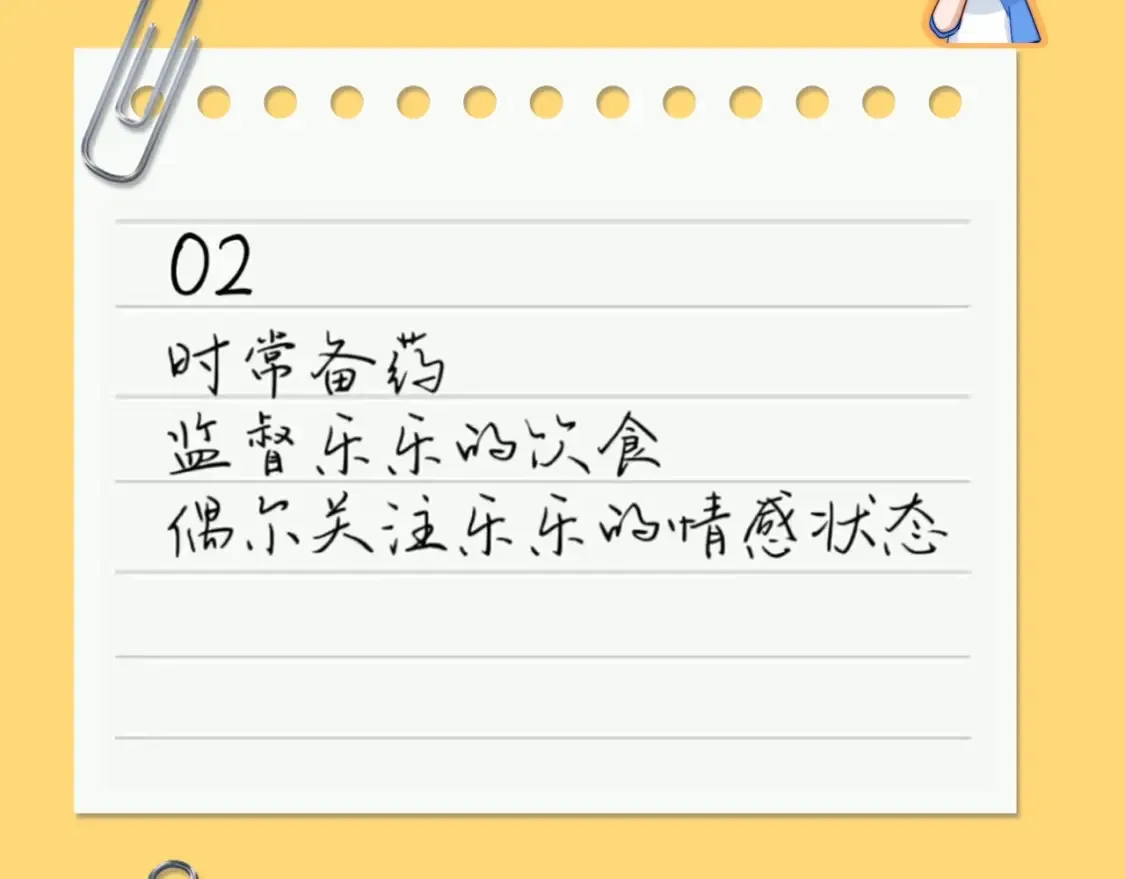 02
时常备药
监督乐乐的饮食
偶尔关注乐乐的情感状态